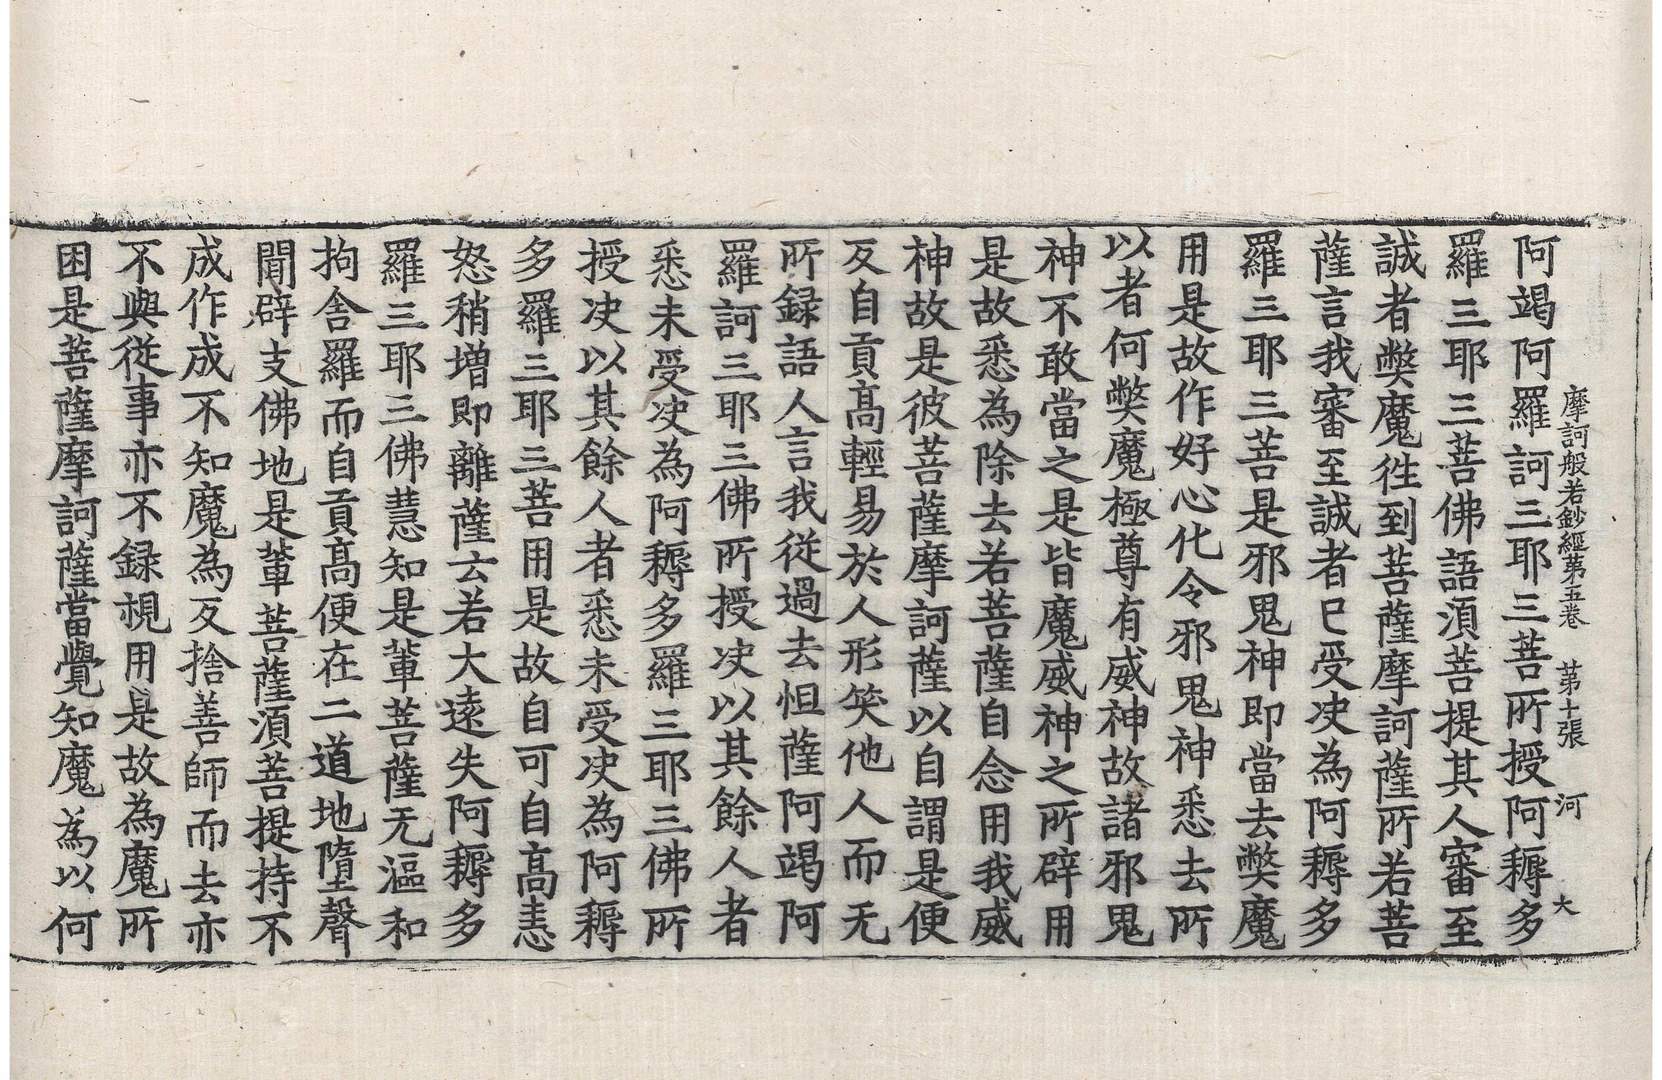 摩訶般若鈔經第五卷　第十張　河　大
阿竭阿羅訶三耶三菩所授阿耨多
羅三耶三菩佛語湏菩提其人審至
誠者弊魔徃到菩薩摩訶薩所若菩
薩言我審至誠者巳受决為阿耨多
羅三耶三菩是邪鬼神即當去弊魔
用是故作好心化令邪鬼神悉去所
以者何弊魔極尊有威神故諸邪鬼
神不敢當之是皆魔威神之所辟用
是故悉為除去若菩薩自念用我威
神故是彼菩薩摩訶薩以自謂是便
反自貢高輕易於人形笑他人而无
所録語人言我從過去怛薩阿竭阿
羅訶三耶三佛所授决以其餘人者
悉未受决為阿耨多羅三耶三佛所
授决以其餘人者悉未受决為阿耨
多羅三耶三菩用是故自可自高恚
怒稍增即離薩云若大遠失阿耨多
羅三耶三佛慧知是輩菩薩无漚和
拘舍羅而自貢高便在二道地墮聲
聞辟支佛地是輩菩薩湏菩提持不
成作成不知魔為反捨善師而去亦
不與從事亦不録視用是故為魔所
困是菩薩摩訶薩當覺知魔為以何